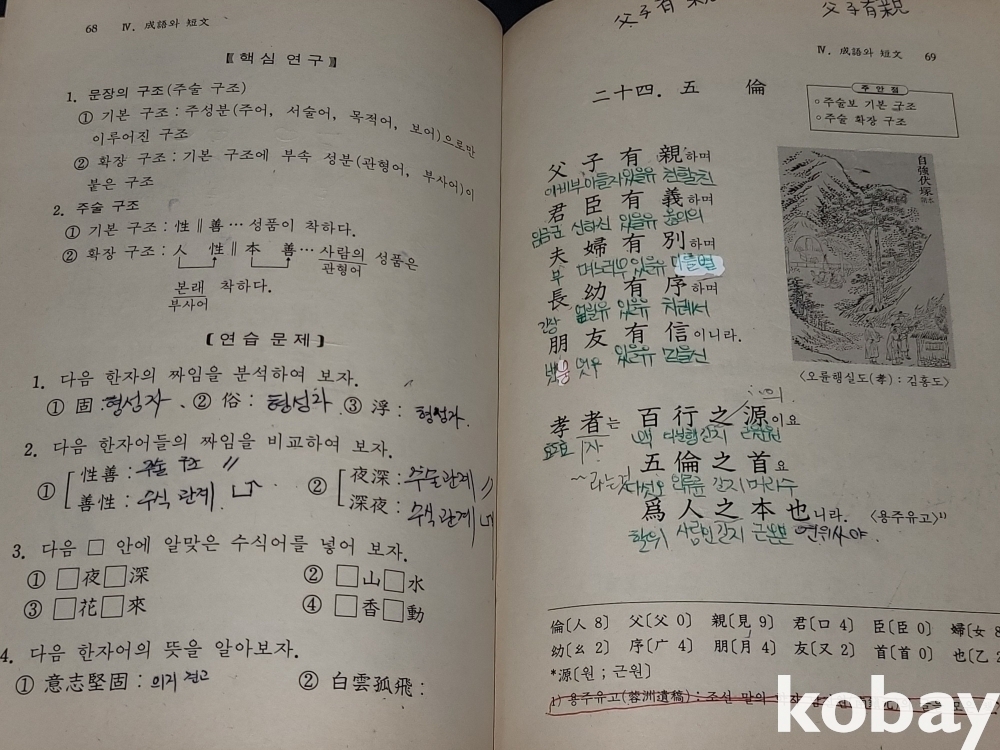 68 Ⅳ. 成語와 短文
【핵심 연구】
1. 문장의 구조(주술 구조)
① 기본 구조 : 주성분(주어, 서술어, 목적어, 보어)으로만
이루어진 구조
② 확장 구조 : 기본 구조에 부속 성분(관형어, 부사어)이
붙은 구조
2. 주술 구조
① 기본 구조 : 性 ∥ 善 … 성품이 착하다.
② 확장 구조 : 人 性 ∥ 本 善 … 사람의 성품은
관형어
본래 착하다.
부사어
【연습 문제】
1. 다음 한자의 짜임을 분석하여 보자.
① 固 : 형성자 ② 俗 : 형성자 ③ 浮 : 형성자
2. 다음 한자어들의 짜임을 비교하여 보자.
① 性善 : 주술 구조
善性 : 수식 관계
② 夜深 : 주술관계
深夜 : 수식관계
3. 다음 □ 안에 알맞은 수식어를 넣어 보자.
① □夜□深 ② □山□水
③ □花□來 ④ □香□動
4. 다음 한자어의 뜻을 알아보자.
① 意志堅固 : 의지 견고 ② 白雲孤飛 :
父子有親 父子有親
Ⅳ. 成語와 短文 69
二十四. 五 倫
주안점
○주술보 기본 구조
○주술 확장 구조
父子有親하며
아비부 아들자 있을유 친할친
君臣有義하며
임금군 신하신 있을유 옳의의
夫婦有別하며
부 며느리부 있을유 다를별
長幼有序하며
긴장 어릴유 있을유 차례서
朋友有信이니라.
벗붕 벗우 있을유 믿을신
自強伏塚
〈오륜행실도(孝) : 김홍도〉
孝者는 百行之源이요
효도효 자 백 다닐행 갈지 근원원
五倫之首요
다섯오 인륜륜 갈지 머리수
爲人之本也니라. 〈용주유고〉1)
할위 사람인 갈지 근본본 연위사야
倫〔人 8〕 父〔父 0〕 親〔見 9〕 君〔口 4〕 臣〔臣 0〕 婦〔女 8
幼〔幺 2〕 序〔广 4〕 朋〔月 4〕 友〔又 2〕 首〔首 0〕 也〔乙 2
*源〔원 ; 근원〕
1) 용주유고(蓉洲遺稿) : 조선 말의
kobay